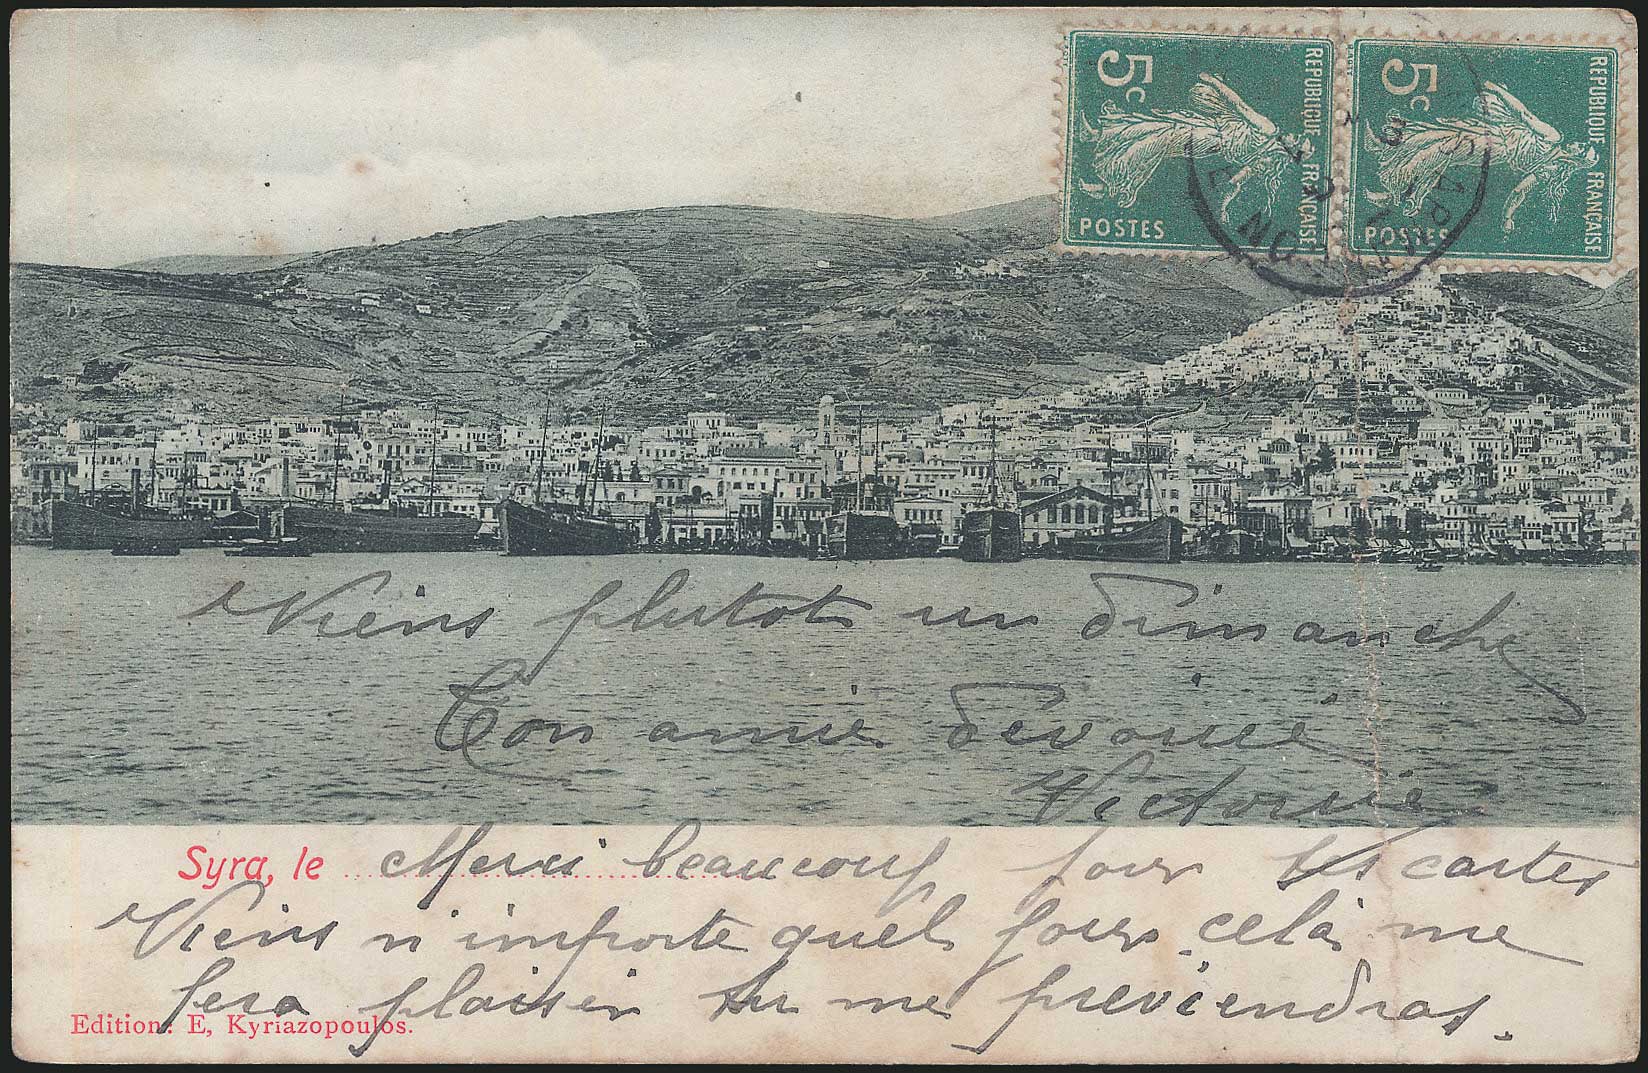 5c
REPUBLIQUE FRANÇAISE
POSTES
5c
REPUBLIQUE FRANÇAISE
POSTES
Viens plutot un dimanche
Ton amie dévouée
Victorine
Syra, le
Merci beaucoup pour tes cartes
Viens n'importe quel jour celà me
fera plaisir tu me previendras.
Edition: E, Kyriazopoulos.